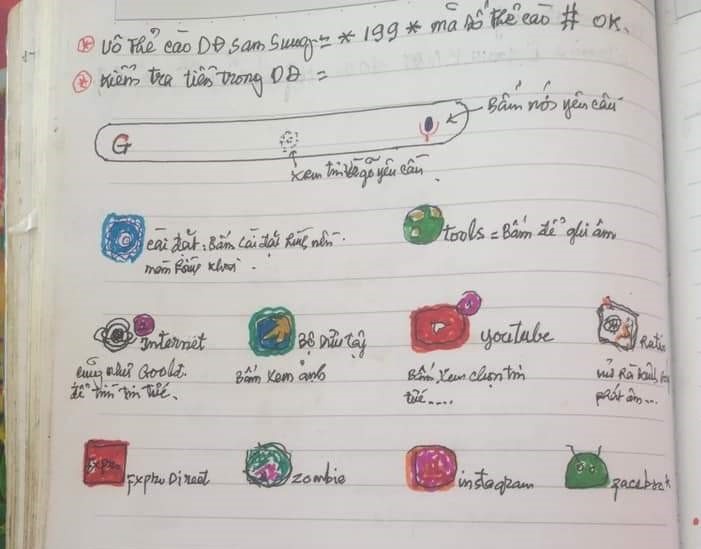 Vô thẻ cào DĐ Sam Sung = * 199 * mã số thẻ cào # OK.
Kiểm tra tiền trong DĐ =
Bấm nói yêu cầu
G
Xem tin và gõ yêu cầu.
Cài đặt: Bấm cài đặt hình nền
màn hình khoá.
tools = Bấm để ghi âm
Internet
cũng như Goold.
để tìm tin tức.
Bộ sưu tập
Bấm xem ảnh
youtube
Bấm, xem chọn tin
tức....
Ratio
phát âm...
Fxpro
Fxpro Direct
zombie
instagram